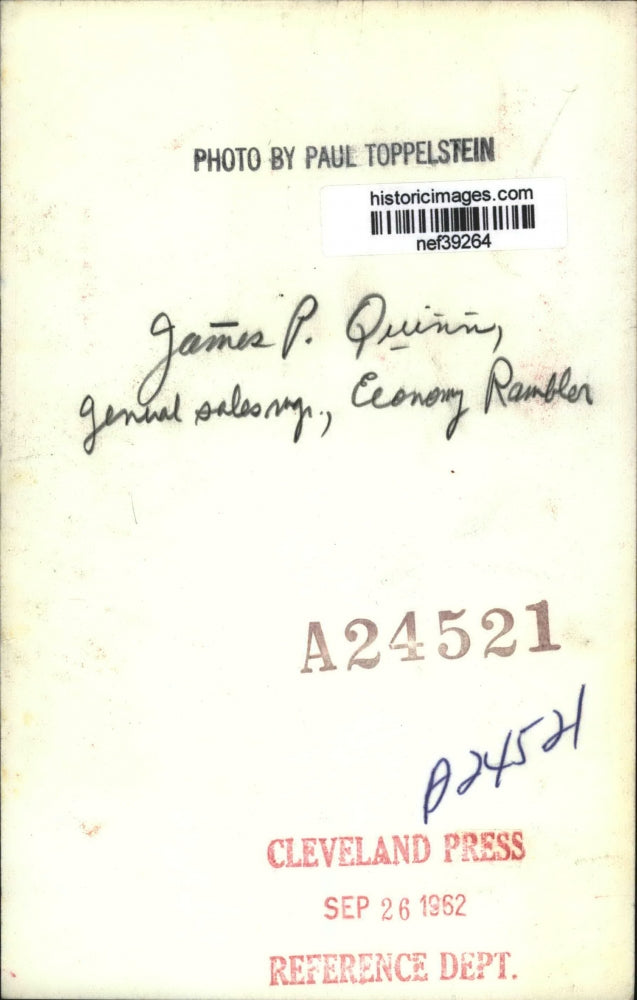 PHOTO BY PAUL TOPPELSTEIN
historicimages.com
nef39264
James P. Quinn,
general sales mgr., Economy Rambler
A24521
A24521
CLEVELAND PRESS
SEP 26 1962
REFERENCE DEPT.